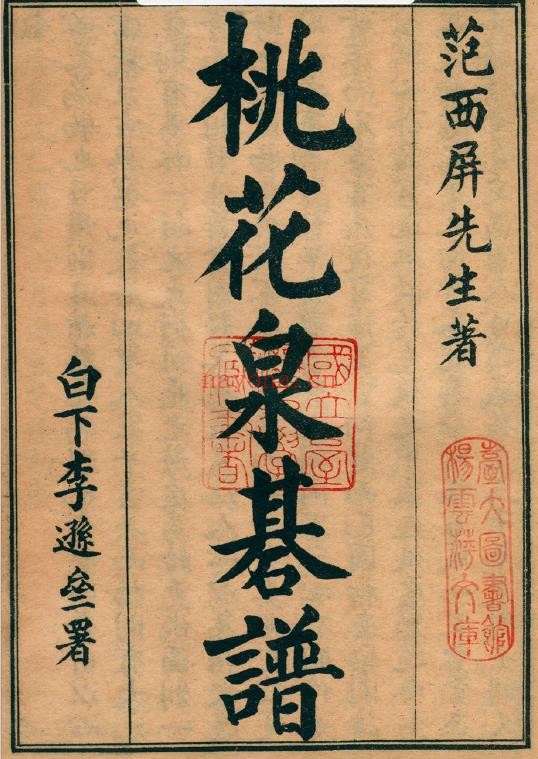 范西屏先生著
桃花泉碁譜
白下李遜叁署
臺大圖書館
楊雲萍文庫
國立臺